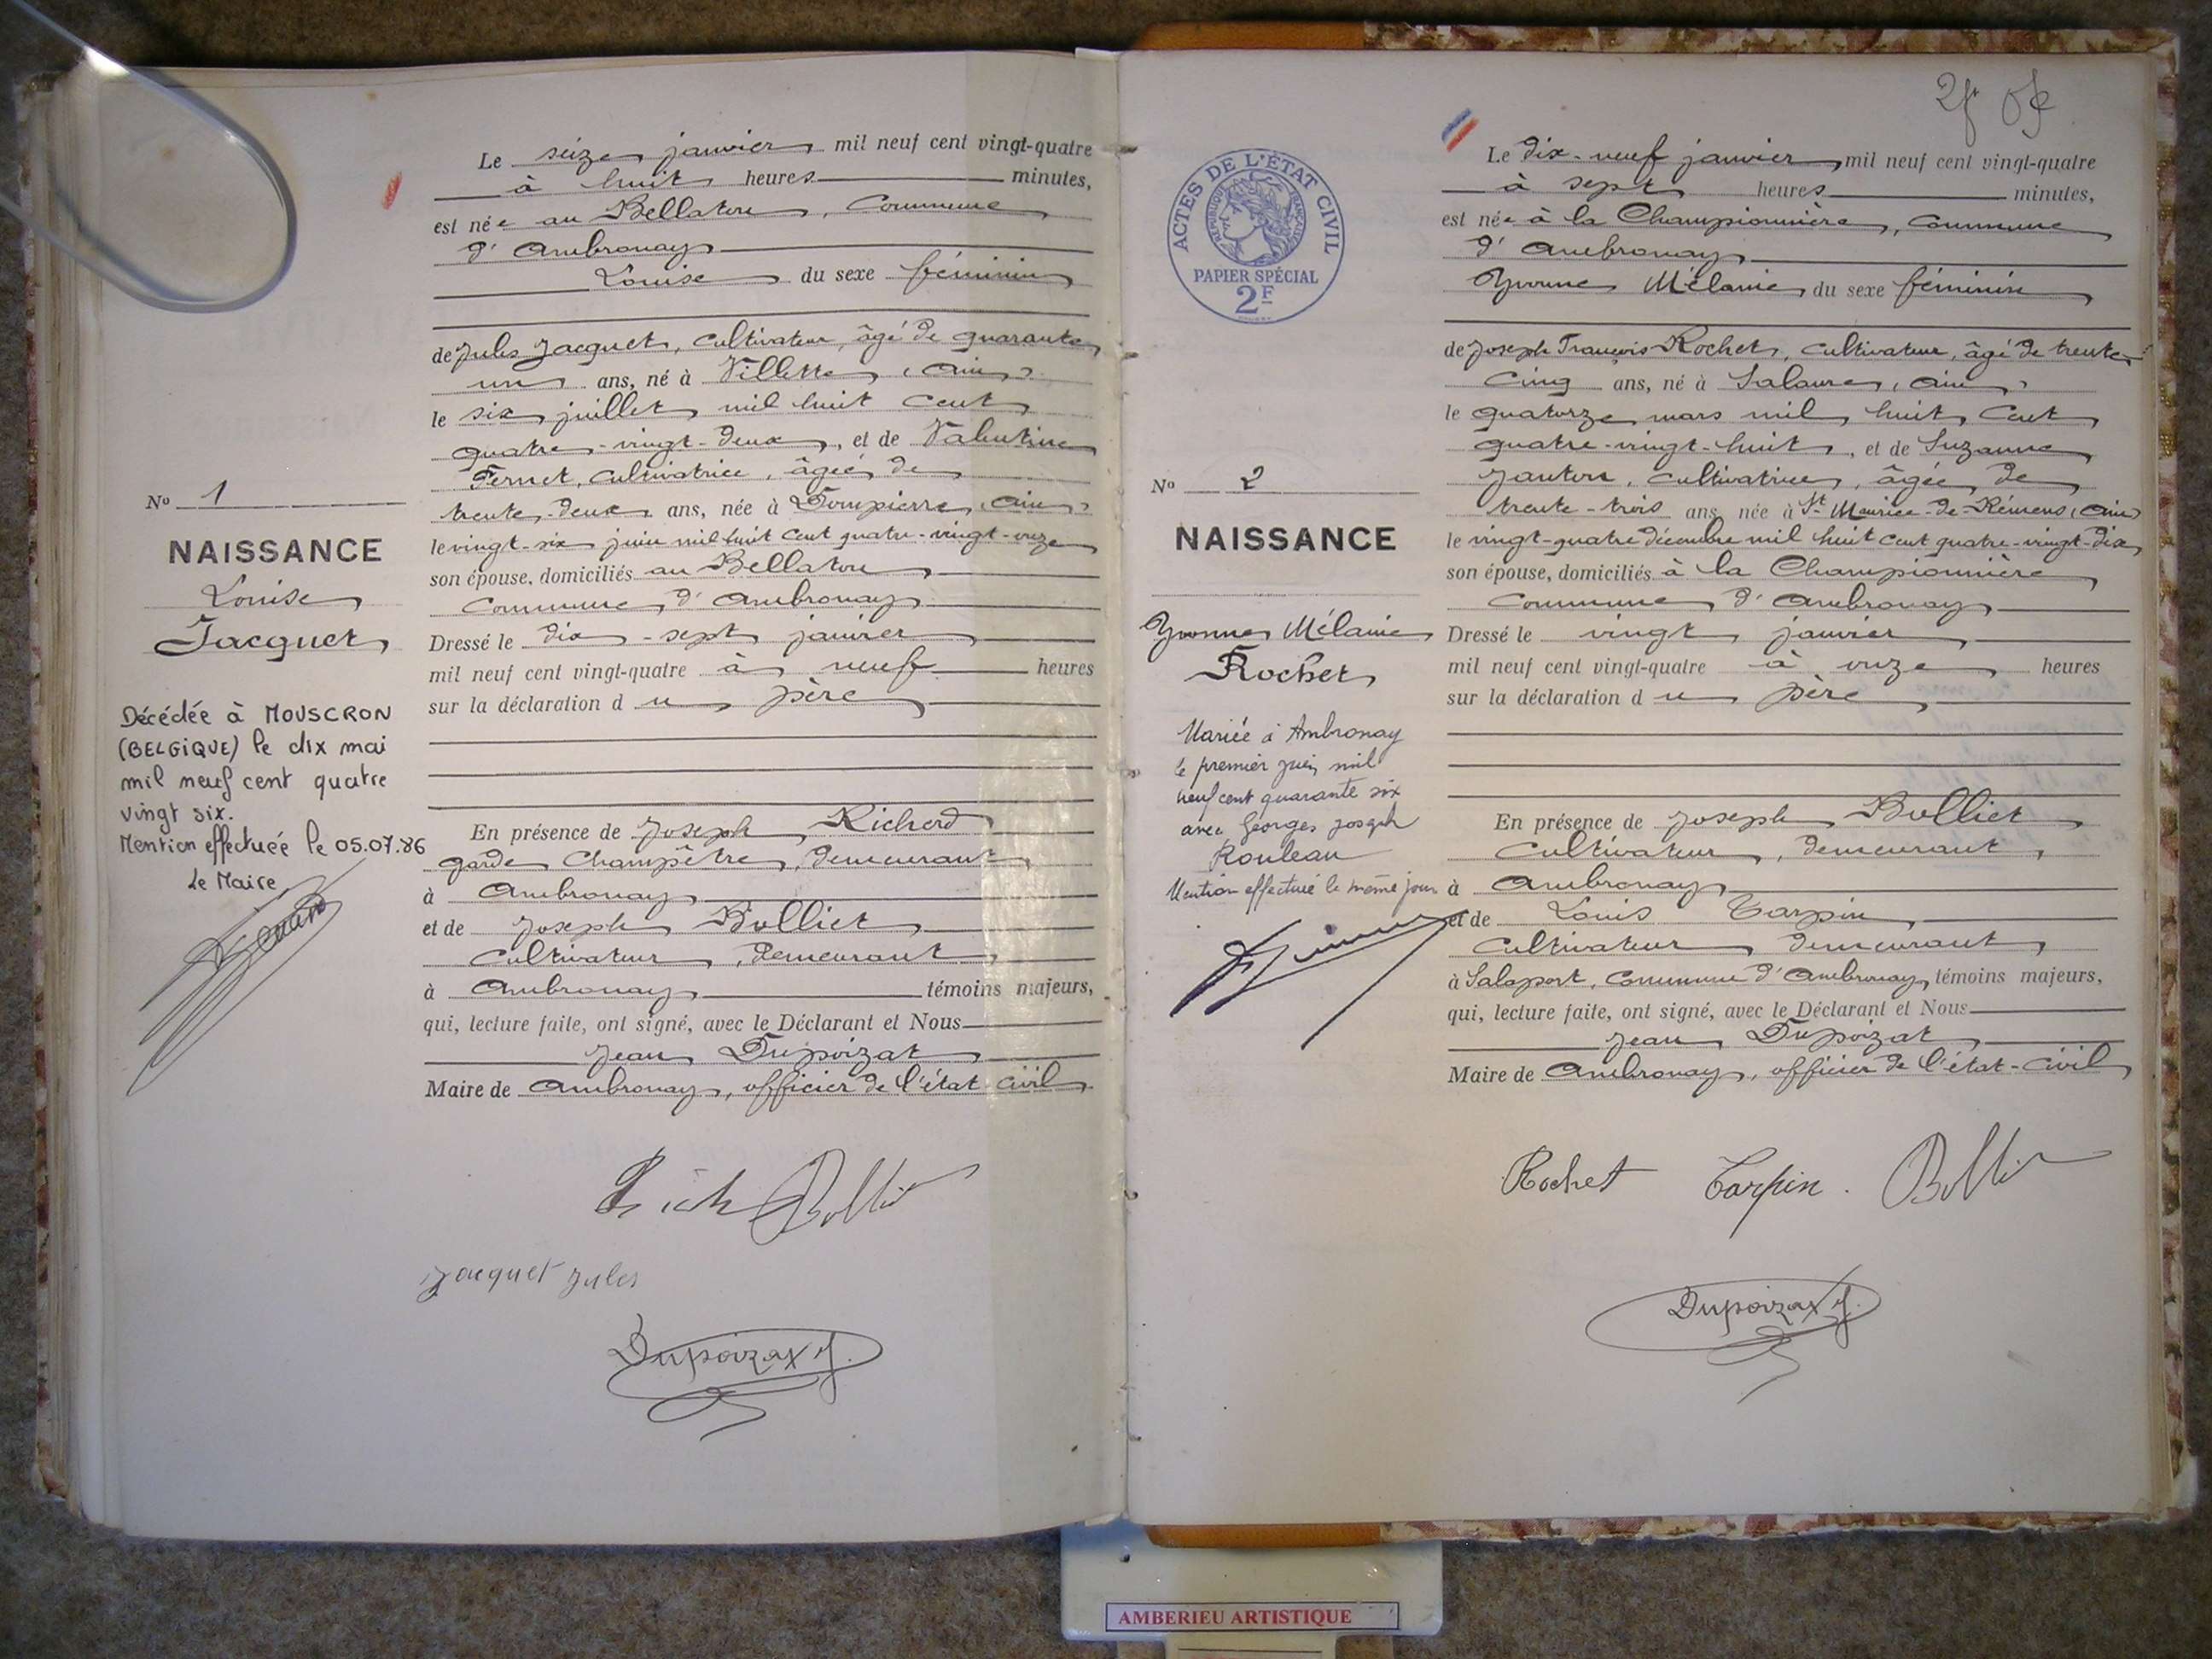 Le seize janvier mil neuf cent vingt-quatre
à huit heures minutes,
est née au Bellaton, Commune
d'Ambronay
Louise du sexe féminin
de Jules Jacquet, cultivateur, âgé de quarante
un ans, né à Villette (Ain)
le six juillet mil huit cent
quatre-vingt-deux, et de Valentine
Fernet, cultivatrice, âgée de
trente-deux ans, née à Dompierre (Ain)
le vingt-six juin mil huit cent quatre-vingt-onze
son épouse, domiciliés au Bellaton
Commune d'Ambronay
Dressé le dix-sept janvier
mil neuf cent vingt-quatre à neuf heures
sur la déclaration du père
En présence de Joseph Richerd
garde Champêtre, demeurant
à Ambronay
et de Joseph Bolliet
Cultivateur, demeurant
à Ambronay témoins majeurs,
qui, lecture faite, ont signé, avec le Déclarant et Nous
Jean Dupoizat
Maire de Ambronay, officier de l'état civil
N° 1
NAISSANCE
Louise
Jacquet
Décédée à MOUSCRON
(BELGIQUE) le dix mai
mil neuf cent quatre
vingt six.
Mention effectuée le 05.07.86
Le Maire
Rich Bolliet
Jacquet Jules
Dupoizat J.
ACTES DE L'ÉTAT CIVIL
RÉPUBLIQUE FRANÇAISE
PAPIER SPÉCIAL
2F
N° 2
NAISSANCE
Yvonne Mélanie
Rochet
Mariée à Ambronay
le premier juin mil
neuf cent quarante six
avec Georges Joseph
Rouleau
Mention effectuée le même jour
Le dix-neuf janvier mil neuf cent vingt-quatre
à sept heures minutes,
est née à la Championnière, Commune
d'Ambronay
Yvonne Mélanie du sexe féminin
de Joseph François Rochet, cultivateur, âgé de trente
cinq ans, né à Salavre, Ain,
le quatorze mars mil huit cent
quatre-vingt-huit, et de Suzanne
Janton, cultivatrice, âgée de
trente-trois ans, née à St Maurice-de-Rémens (Ain)
le vingt-quatre décembre mil huit cent quatre-vingt-dix
son épouse, domiciliés à la Championnière
Commune d'Ambronay
Dressé le vingt janvier
mil neuf cent vingt-quatre à onze heures
sur la déclaration du père
En présence de Joseph Bolliet
Cultivateur, demeurant
à Ambronay
et de Louis Tarpin
Cultivateur demeurant
à Salaport, Commune d'Ambronay, témoins majeurs,
qui, lecture faite, ont signé, avec le Déclarant et Nous
Jean Dupoizat
Maire de Ambronay, officier de l'état-civil
Rochet Tarpin. Bolliet
Dupoizat J.
AMBERIEU ARTISTIQUE